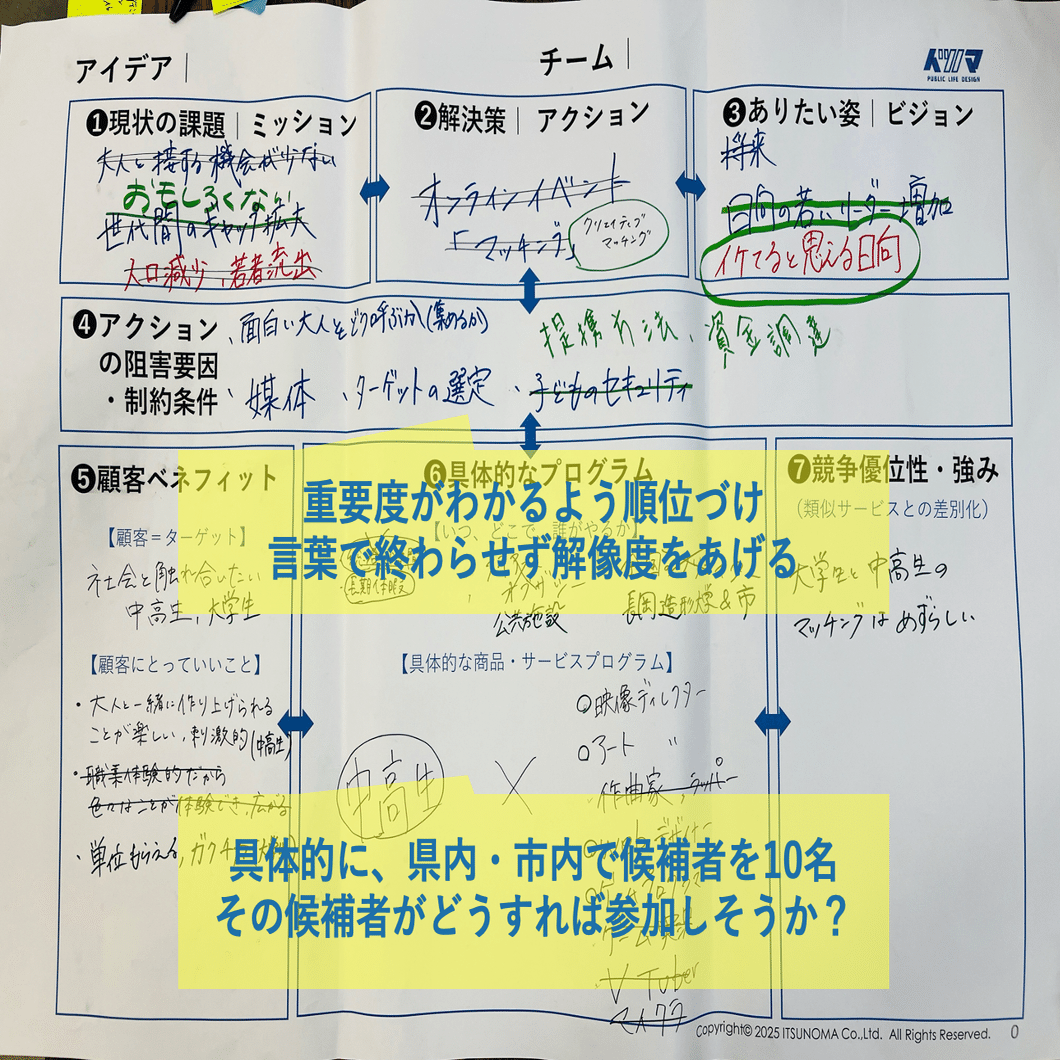 アイデア｜
チーム｜
ITSUNOMA
PUBLIC LIFE DESIGN
❶現状の課題｜ミッション
大人と接する機会が少ない
おもしろくない
世代間のギャップ拡大
人口減少、若者流出
❷解決策｜アクション
オンラインイベント
「マッチング」
クリエイティブ
マッチング
❸ありたい姿｜ビジョン
将来
日向の若いリーダー増加
イケてると思える日向
❹アクション
の阻害要因
・制約条件
、面白い大人をどう呼ぶか(集めるか)
提携方法、資金調達
・媒体 、ターゲットの選定 ・子どものセキュリティ
❺顧客ベネフィット
【顧客＝ターゲット】
社会と触れ合いたい
中高生、大学生
【顧客にとっていいこと】
・大人と一緒に作り上げられる
ことが楽しい、刺激的(中高生)
・職業体験的だから
色々なことが体験でき、広がる
・単位もらえる、ガクチカ
❻具体的なプログラム
【いつ、どこで、誰がやるか】
長期休暇
公共施設
長岡造形大＆市
重要度がわかるよう順位づけ
言葉で終わらせず解像度をあげる
【具体的な商品・サービスプログラム】
中高生 ×
○映像ディレクター
○アート 〃
・作曲家、ラッパー
ゲーム実況
・V Tuber
マイクラ
具体的に、県内・市内で候補者を10名
その候補者がどうすれば参加しそうか？
❼競争優位性・強み
（類似サービスとの差別化）
大学生と中高生の
マッチングはめずらしい
Copyright© 2025 ITSUNOMA Co.,Ltd. All Rights Reserved. 0